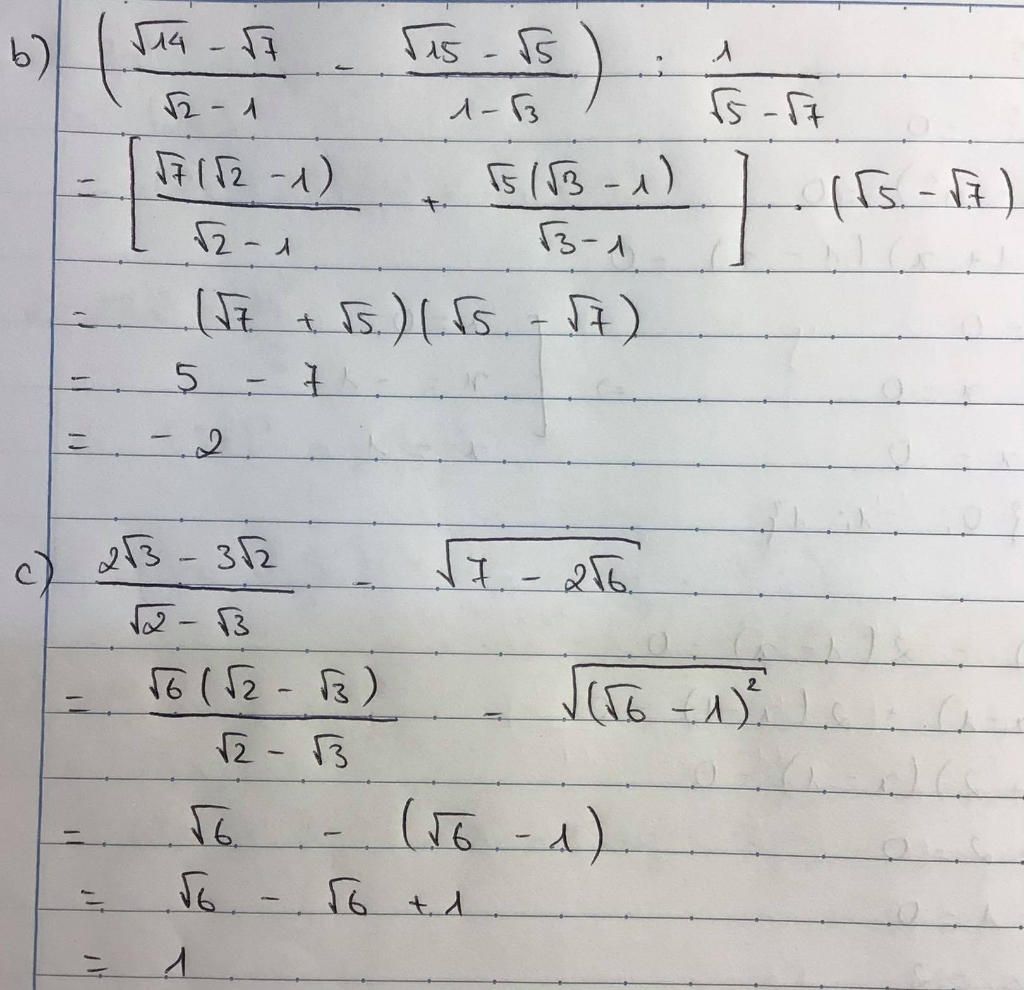 b) ( (√14 - √7)/(√2 - 1) - (√15 - √5)/(1 - √3) ) : 1/(√5 - √7)
= [ √7(√2 - 1)/(√2 - 1) + √5(√3 - 1)/(√3 - 1) ] . (√5 - √7)
= (√7 + √5)(√5 - √7)
= 5 - 7
= -2
c) (2√3 - 3√2)/(√2 - √3) - √(7 - 2√6)
= √6(√2 - √3)/(√2 - √3) - √((√6 - 1)²)
= √6 - (√6 - 1)
= √6 - √6 + 1
= 1